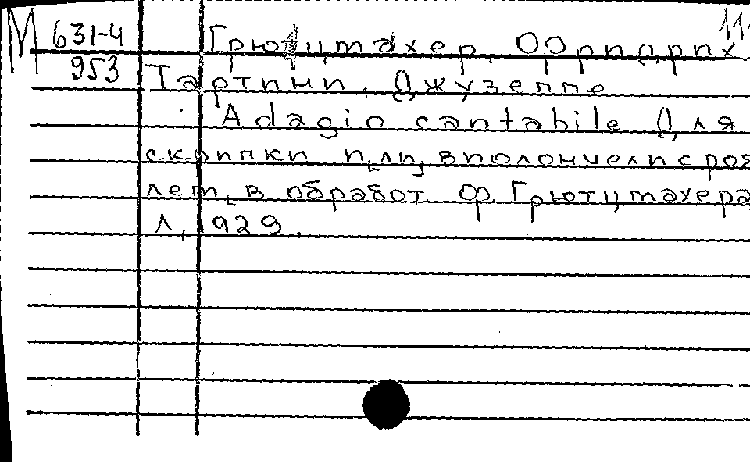 М 631-4
953
111
Грютцмахер, Фридрих
Тартини, Джузеппе
Adagio cantabile Для
скрипки или виолончели с роя
лем, в обработ. Ф. Грютцмахера
Л, 1929.